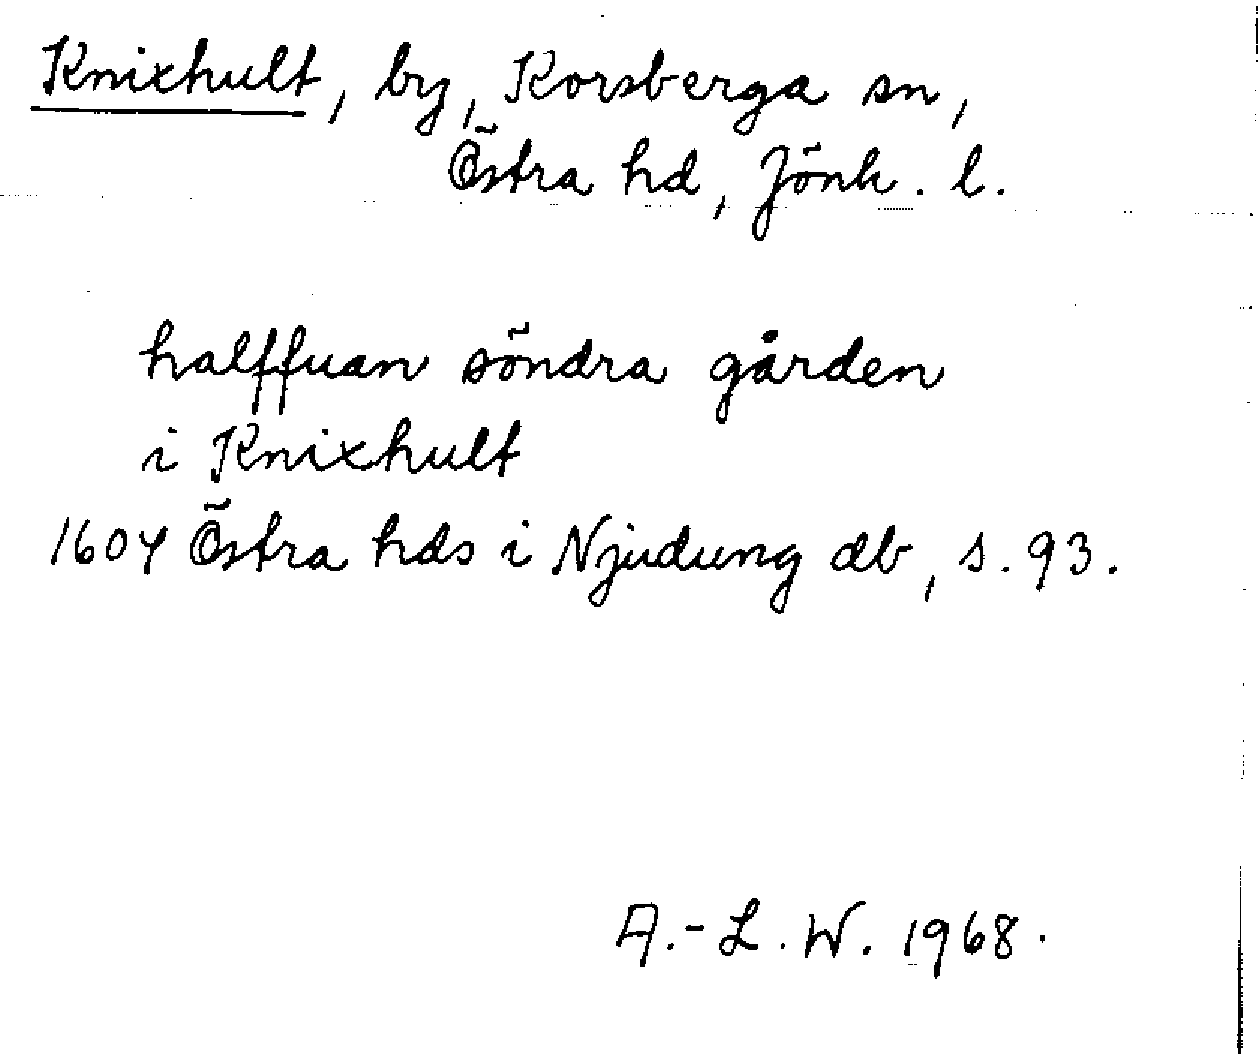 Knixhult, by, Korsberga sn,
Östra hd, Jönk. l.
halffuan söndra gården
i Knixhult
1604 Östra hds i Njudung db, s. 93.
A.-L. W. 1968.